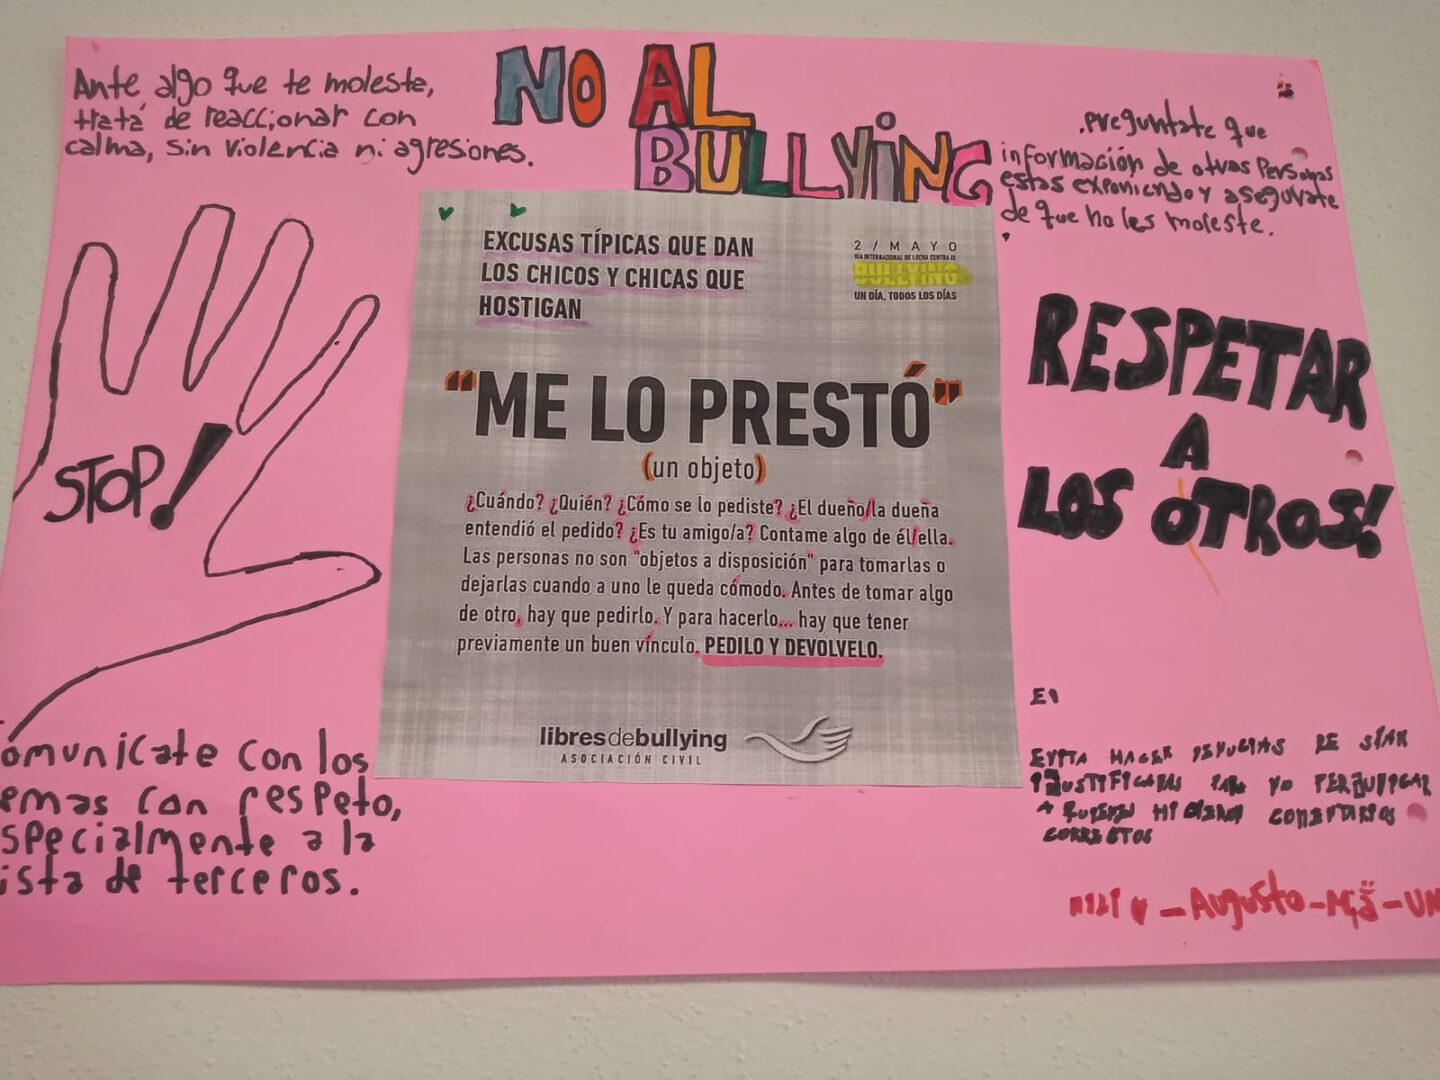 NO AL
BULLYING
Ante algo que te moleste,
tratá de reaccionar con
calma, sin violencia ni agresiones.
.preguntate que
información de otras personas
estas exponiendo y asegurate
de que no les moleste.
STOP!
EXCUSAS TÍPICAS QUE DAN
LOS CHICOS Y CHICAS QUE
HOSTIGAN
2 / MAYO
DÍA INTERNACIONAL DE LUCHA CONTRA EL
BULLYING
UN DÍA, TODOS LOS DÍAS
"ME LO PRESTÓ"
(un objeto)
¿Cuándo? ¿Quién? ¿Cómo se lo pediste? ¿El dueño/la dueña
entendió el pedido? ¿Es tu amigo/a? Contame algo de él/ella.
Las personas no son "objetos a disposición" para tomarlas o
dejarlas cuando a uno le queda cómodo. Antes de tomar algo
de otro, hay que pedirlo. Y para hacerlo... hay que tener
previamente un buen vínculo. PEDILO Y DEVOLVELO.
libresdebullying
ASOCIACIÓN CIVIL
RESPETAR
A
LOS OTROS!
omunicate con los
emas con respeto,
specialmente a la
ista de terceros.
HACER
PARA NO PERJUDICAR
A QUIENES HICIERON COMENTARIOS
CORRECTOS
- Augusto -